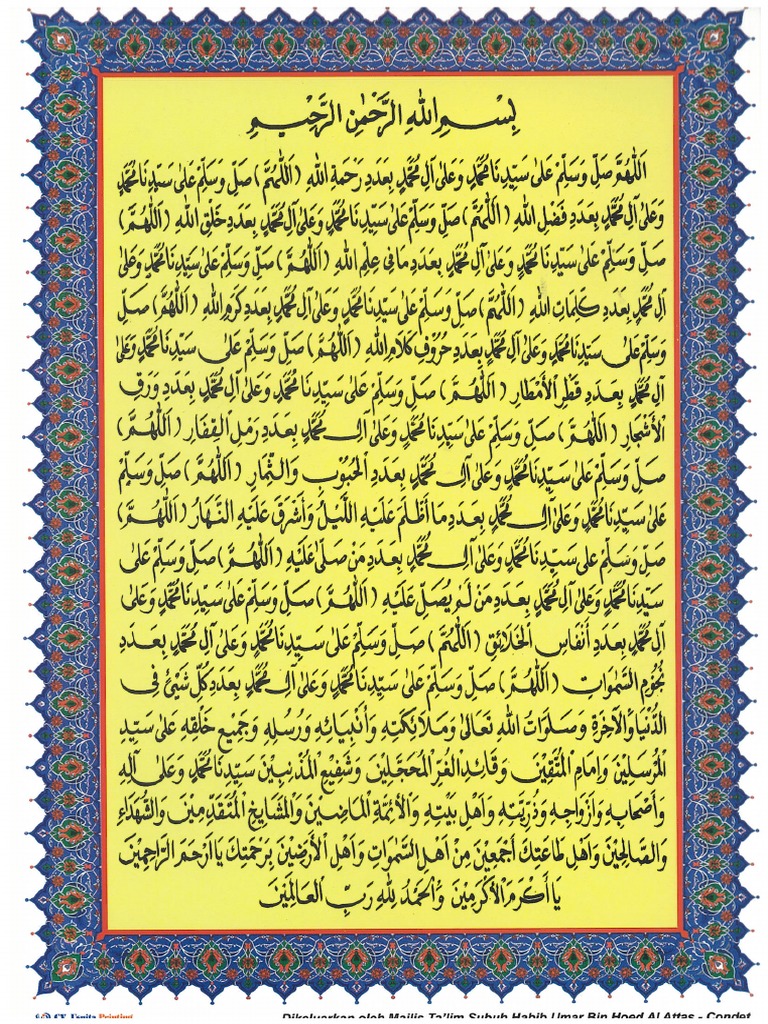 بِسْمِ اللهِ الرَّحْمٰنِ الرَّحِيْمِ
اَللّٰهُمَّ صَلِّ وَسَلِّمْ عَلٰى سَيِّدِنَا مُحَمَّدٍ وَعَلٰى آلِ مُحَمَّدٍ بِعَدَدِ رَحْمَةِ اللهِ (اَللّٰهُمَّ) صَلِّ وَسَلِّمْ عَلٰى سَيِّدِنَا مُحَمَّدٍ
وَعَلٰى آلِ مُحَمَّدٍ بِعَدَدِ فَضْلِ اللهِ (اَللّٰهُمَّ) صَلِّ وَسَلِّمْ عَلٰى سَيِّدِنَا مُحَمَّدٍ وَعَلٰى آلِ مُحَمَّدٍ بِعَدَدِ خَلْقِ اللهِ (اَللّٰهُمَّ)
صَلِّ وَسَلِّمْ عَلٰى سَيِّدِنَا مُحَمَّدٍ وَعَلٰى آلِ مُحَمَّدٍ بِعَدَدِ مَا فِى عِلْمِ اللهِ (اَللّٰهُمَّ) صَلِّ وَسَلِّمْ عَلٰى سَيِّدِنَا مُحَمَّدٍ وَعَلٰى
آلِ مُحَمَّدٍ بِعَدَدِ كَلِمَاتِ اللهِ (اَللّٰهُمَّ) صَلِّ وَسَلِّمْ عَلٰى سَيِّدِنَا مُحَمَّدٍ وَعَلٰى آلِ مُحَمَّدٍ بِعَدَدِ كَرَمِ اللهِ (اَللّٰهُمَّ) صَلِّ
وَسَلِّمْ عَلٰى سَيِّدِنَا مُحَمَّدٍ وَعَلٰى آلِ مُحَمَّدٍ بِعَدَدِ حُرُوْفِ كَلَامِ اللهِ (اَللّٰهُمَّ) صَلِّ وَسَلِّمْ عَلٰى سَيِّدِنَا مُحَمَّدٍ وَعَلٰى
آلِ مُحَمَّدٍ بِعَدَدِ قَطْرِ الْأَمْطَارِ (اَللّٰهُمَّ) صَلِّ وَسَلِّمْ عَلٰى سَيِّدِنَا مُحَمَّدٍ وَعَلٰى آلِ مُحَمَّدٍ بِعَدَدِ وَرَقِ
الْأَشْجَارِ (اَللّٰهُمَّ) صَلِّ وَسَلِّمْ عَلٰى سَيِّدِنَا مُحَمَّدٍ وَعَلٰى آلِ مُحَمَّدٍ بِعَدَدِ رَمْلِ الْقِفَارِ (اَللّٰهُمَّ)
صَلِّ وَسَلِّمْ عَلٰى سَيِّدِنَا مُحَمَّدٍ وَعَلٰى آلِ مُحَمَّدٍ بِعَدَدِ الْحُبُوْبِ وَالثِّمَارِ (اَللّٰهُمَّ) صَلِّ وَسَلِّمْ
عَلٰى سَيِّدِنَا مُحَمَّدٍ وَعَلٰى آلِ مُحَمَّدٍ بِعَدَدِ مَا أَظْلَمَ عَلَيْهِ اللَّيْلُ وَأَشْرَقَ عَلَيْهِ النَّهَارُ (اَللّٰهُمَّ)
صَلِّ وَسَلِّمْ عَلٰى سَيِّدِنَا مُحَمَّدٍ وَعَلٰى آلِ مُحَمَّدٍ بِعَدَدِ مَنْ صَلَّى عَلَيْهِ (اَللّٰهُمَّ) صَلِّ وَسَلِّمْ عَلٰى
سَيِّدِنَا مُحَمَّدٍ وَعَلٰى آلِ مُحَمَّدٍ بِعَدَدِ مَنْ لَمْ يُصَلِّ عَلَيْهِ (اَللّٰهُمَّ) صَلِّ وَسَلِّمْ عَلٰى سَيِّدِنَا مُحَمَّدٍ وَعَلٰى
آلِ مُحَمَّدٍ بِعَدَدِ أَنْفَاسِ الْخَلَائِقِ (اَللّٰهُمَّ) صَلِّ وَسَلِّمْ عَلٰى سَيِّدِنَا مُحَمَّدٍ وَعَلٰى آلِ مُحَمَّدٍ بِعَدَدِ
نُجُوْمِ السَّمٰوَاتِ (اَللّٰهُمَّ) صَلِّ وَسَلِّمْ عَلٰى سَيِّدِنَا مُحَمَّدٍ وَعَلٰى آلِ مُحَمَّدٍ بِعَدَدِ كُلِّ شَيْئٍ فِى
الدُّنْيَا وَالْآخِرَةِ وَصَلَوَاتُ اللهِ تَعَالٰى وَمَلَائِكَتِهِ وَأَنْبِيَائِهِ وَرُسُلِهِ وَجَمِيْعِ خَلْقِهِ عَلٰى سَيِّدِ
الْمُرْسَلِيْنَ وَإِمَامِ الْمُتَّقِيْنَ وَقَائِدِ الْغُرِّ الْمُحَجَّلِيْنَ وَشَفِيْعِ الْمُذْنِبِيْنَ سَيِّدِنَا مُحَمَّدٍ وَعَلٰى آلِهِ
وَأَصْحَابِهِ وَأَزْوَاجِهِ وَذُرِّيَّتِهِ وَأَهْلِ بَيْتِهِ وَالْأَئِمَّةِ الْمَاضِيْنَ وَالْمَشَايِخِ الْمُتَقَدِّمِيْنَ وَالشُّهَدَاءِ
وَالصَّالِحِيْنَ وَأَهْلِ طَاعَتِكَ أَجْمَعِيْنَ مِنْ أَهْلِ السَّمٰوَاتِ وَأَهْلِ الْأَرَضِيْنَ بِرَحْمَتِكَ يَا أَرْحَمَ الرَّاحِمِيْنَ
يَا أَكْرَمَ الْأَكْرَمِيْنَ وَالْحَمْدُ لِلهِ رَبِّ الْعَالَمِيْنَ
Printing Dikeluarkan oleh Majlis Ta'lim Subuh Habib Umar Bin Hoed Al Attas - Condet